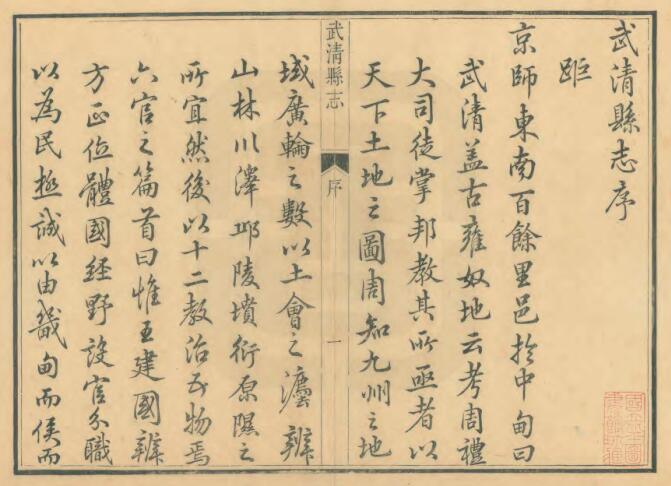 武清縣志序
距
京師東南百餘里邑於中甸曰
武清盖古雍奴地云考周禮
大司徒掌邦教其所亟者以
天下土地之圖周知九州之地
武清縣志
序
一
域廣輪之數以土會之灋辨
山林川澤邱陵墳衍原隰之
所宜然後以十二教治民物焉
六官之篇首曰惟王建國辨
方正位體國經野設官分職
以為民極誠以由畿甸而侯而